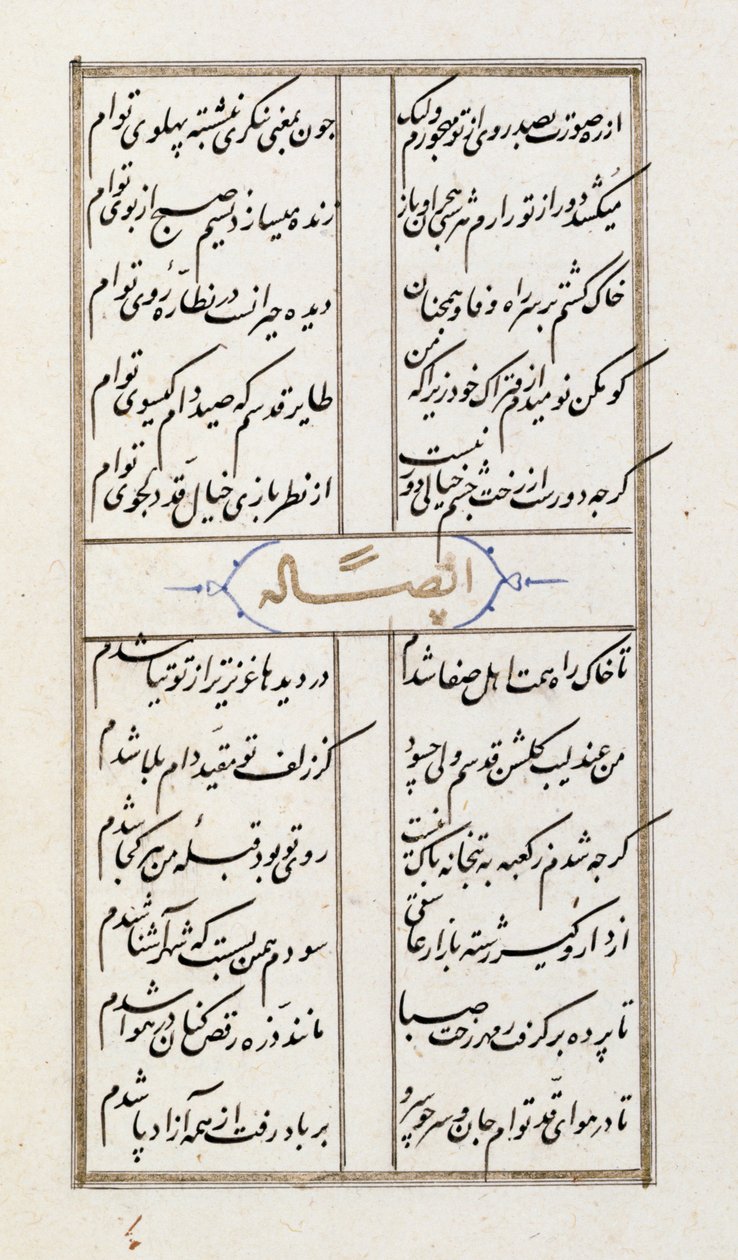 از ره صورت بصد روی از تو مهجورم ولیک
چون بمعنی نکری بنشسته پهلوی توام
میکشد دور از تو را رم هر شبی هجران و باز
زنده میسازد نسیم صبح از بوی توام
خاک کشتم بر سر راه وفا و همچنان
دیده حیرانست در نظّارهٔ روی توام
کو مکن نومیدم از فتراک خود زیرا که من
طایر قدسم که صید دام کیسوی توام
کرچه دورست از رخت چشمم خیالی دور نیست
از نظر بازی خیال قدّ دلجوی توام
ایضاً له
تا خاک راه همت اهل صفا شدم
در دیدها عزیزتر از توتیا شدم
من عندلیب کلشن قدسم ولی چو سود
کز زلف تو مقیّد دام بلا شدم
کرچه شدم ز کعبه به بتخانه باک نیست
روی تو بود قبلهٔ من هر کجا شدم
از دار و کیر رسته بازار عاشقی
سودم همین بس است که شهر آشنا شدم
تا پرده بر کرفت ز مهر رخت صبا
مانند ذرّه رقص کنان در هوا شدم
تا در هوای قدّ توام جان و سر چو سرو
بر باد رفت از همه آزاد پا شدم